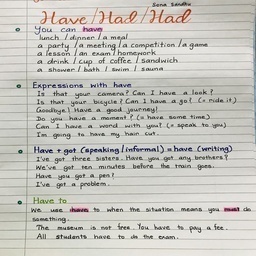 Sana Sandhu
Have / Had / Had
You can have
lunch / dinner / a meal
a party / a meeting / a competition / a game
a lesson / an exam / homework
a drink / cup of coffee / sandwich
a shower / bath / swim / sauna
Expressions with have
Is that your camera? Can I have a look?
Is that your bicycle? Can I have a go? (= ride it)
(Goodbye) Have a good journey!
Do you have a moment? (= have some time)
Can I have a word with you? (= speak to you)
I'm going to have my hair cut.
Have + got (speaking / informal) = have (writing)
I've got three sisters. Have you got any brothers?
We've got ten minutes before the train goes.
Have you got a pen?
I've got a problem.
Have to
We use have to when the situation means you must do
something.
The museum is not free. You have to pay a fee.
All students have to do the exam.